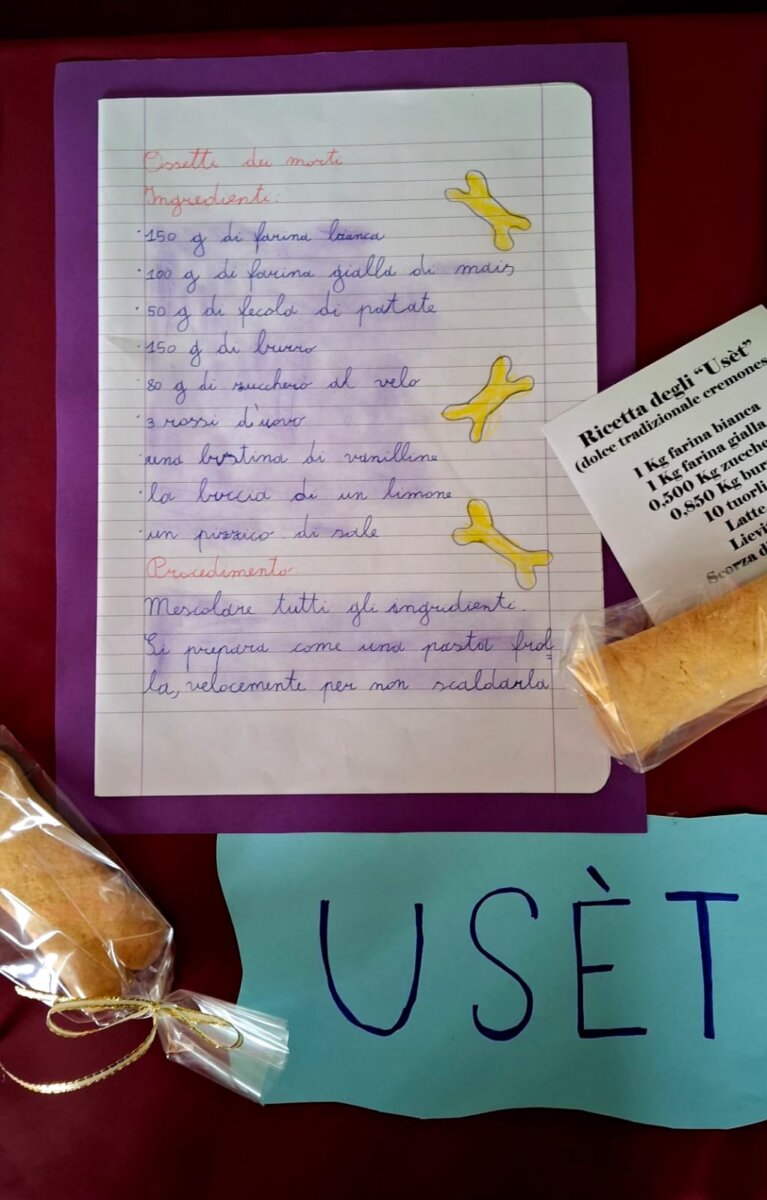 Ossetti dei morti
Ingredienti:
·150 g di farina bianca
·100 g di farina gialla di mais
·50 g di fecola di patate
·150 g di burro
·80 g di zucchero al velo
·3 rossi d'uovo
·una bustina di vanilline
·la buccia di un limone
·un pizzico di sale
Procedimento
Mescolare tutti gli ingridienti.
Si prepara come una pasta frol
la, velocemente per non scaldarla
Ricetta degli "Usèt"
(dolce tradizionale cremones
1 Kg farina bianca
1 Kg farina gialla
0,500 Kg zucche
0,850 Kg bur
10 tuorli
Latte
Lievi
Scorza d
USÈT